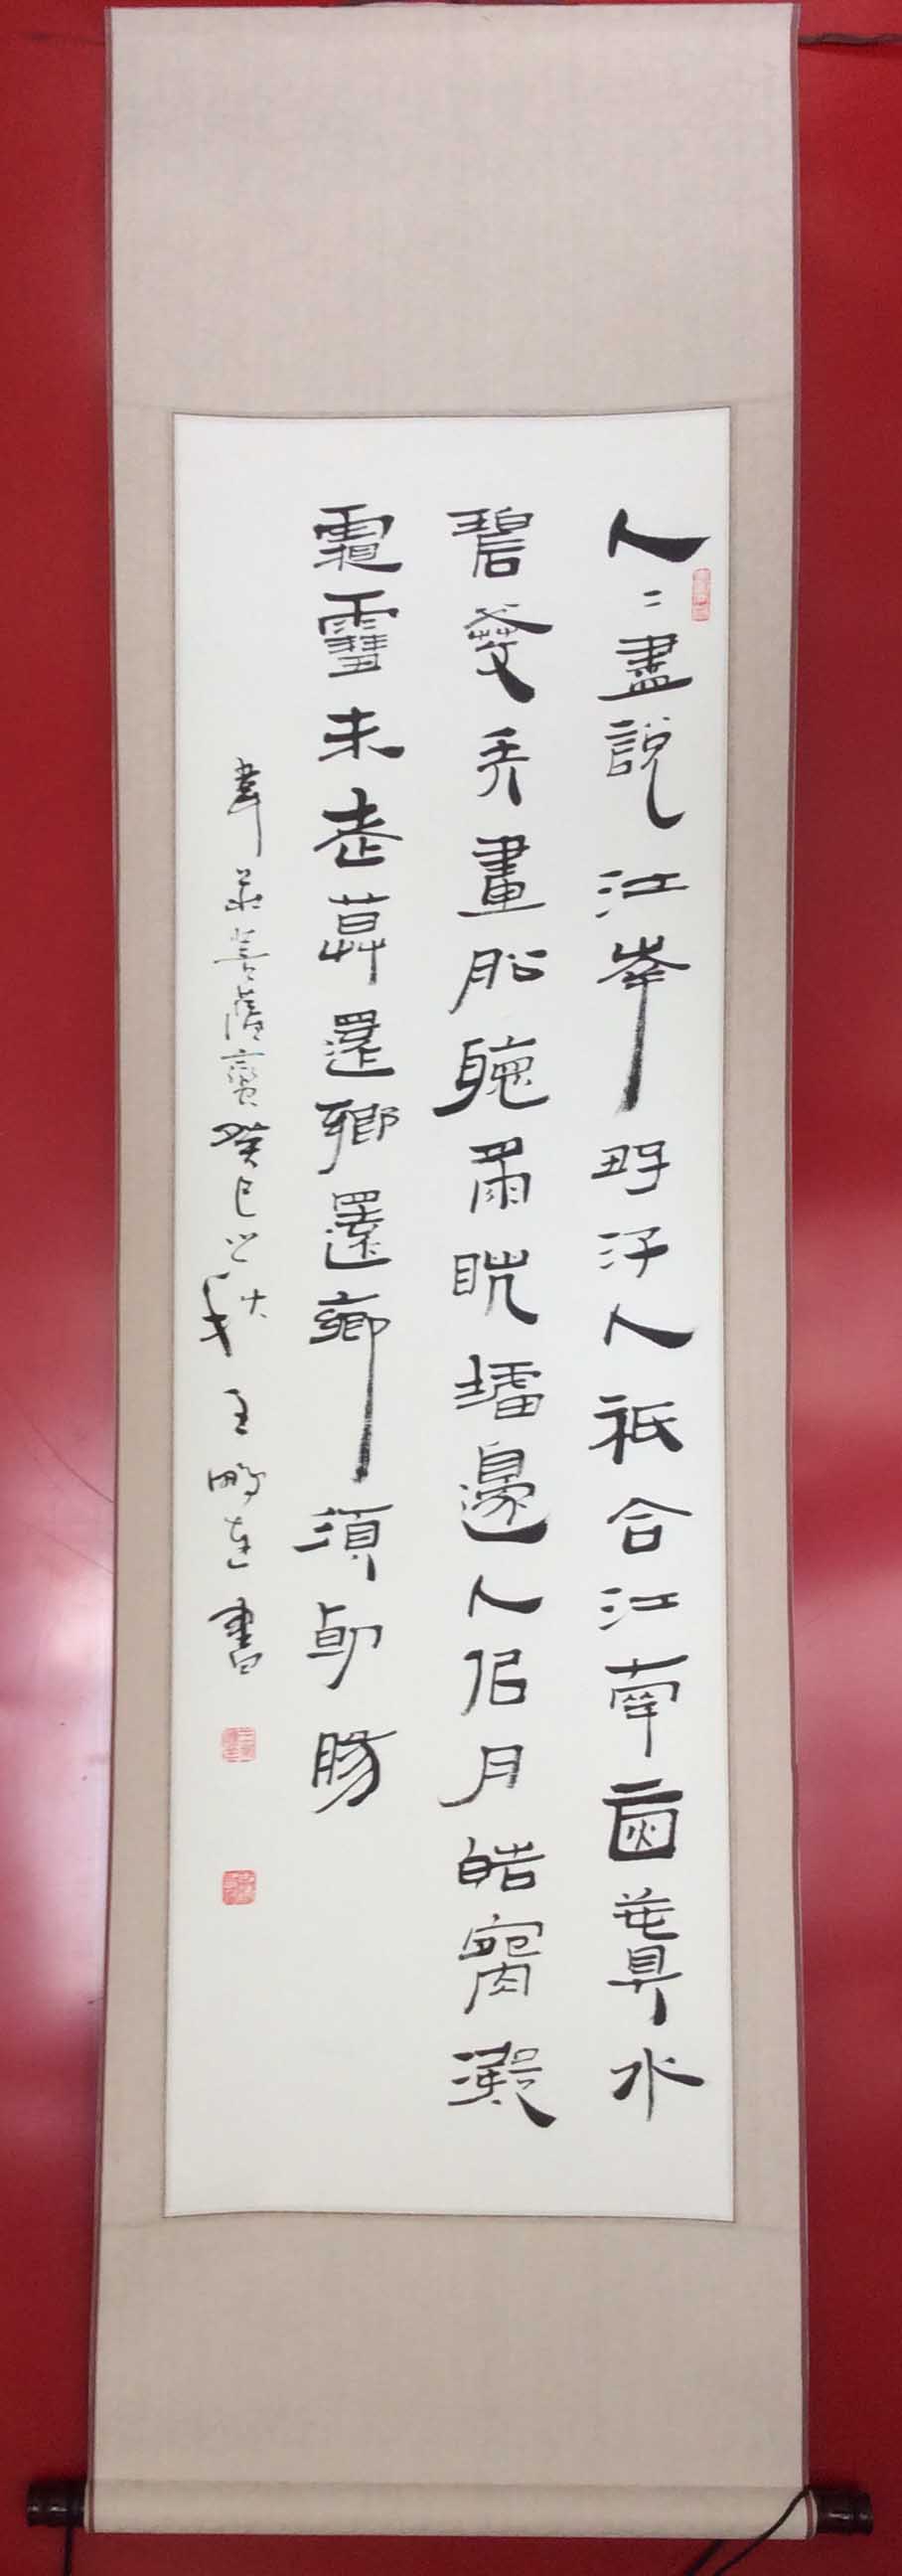 人〻盡說江南好汓人祇合江南老春水
碧於天畫船聽雨眠壚邊人侣月皓腕凝
霜雪未老莫還鄉還鄉須斷腸
韋莊菩薩蠻癸巳之秋王書